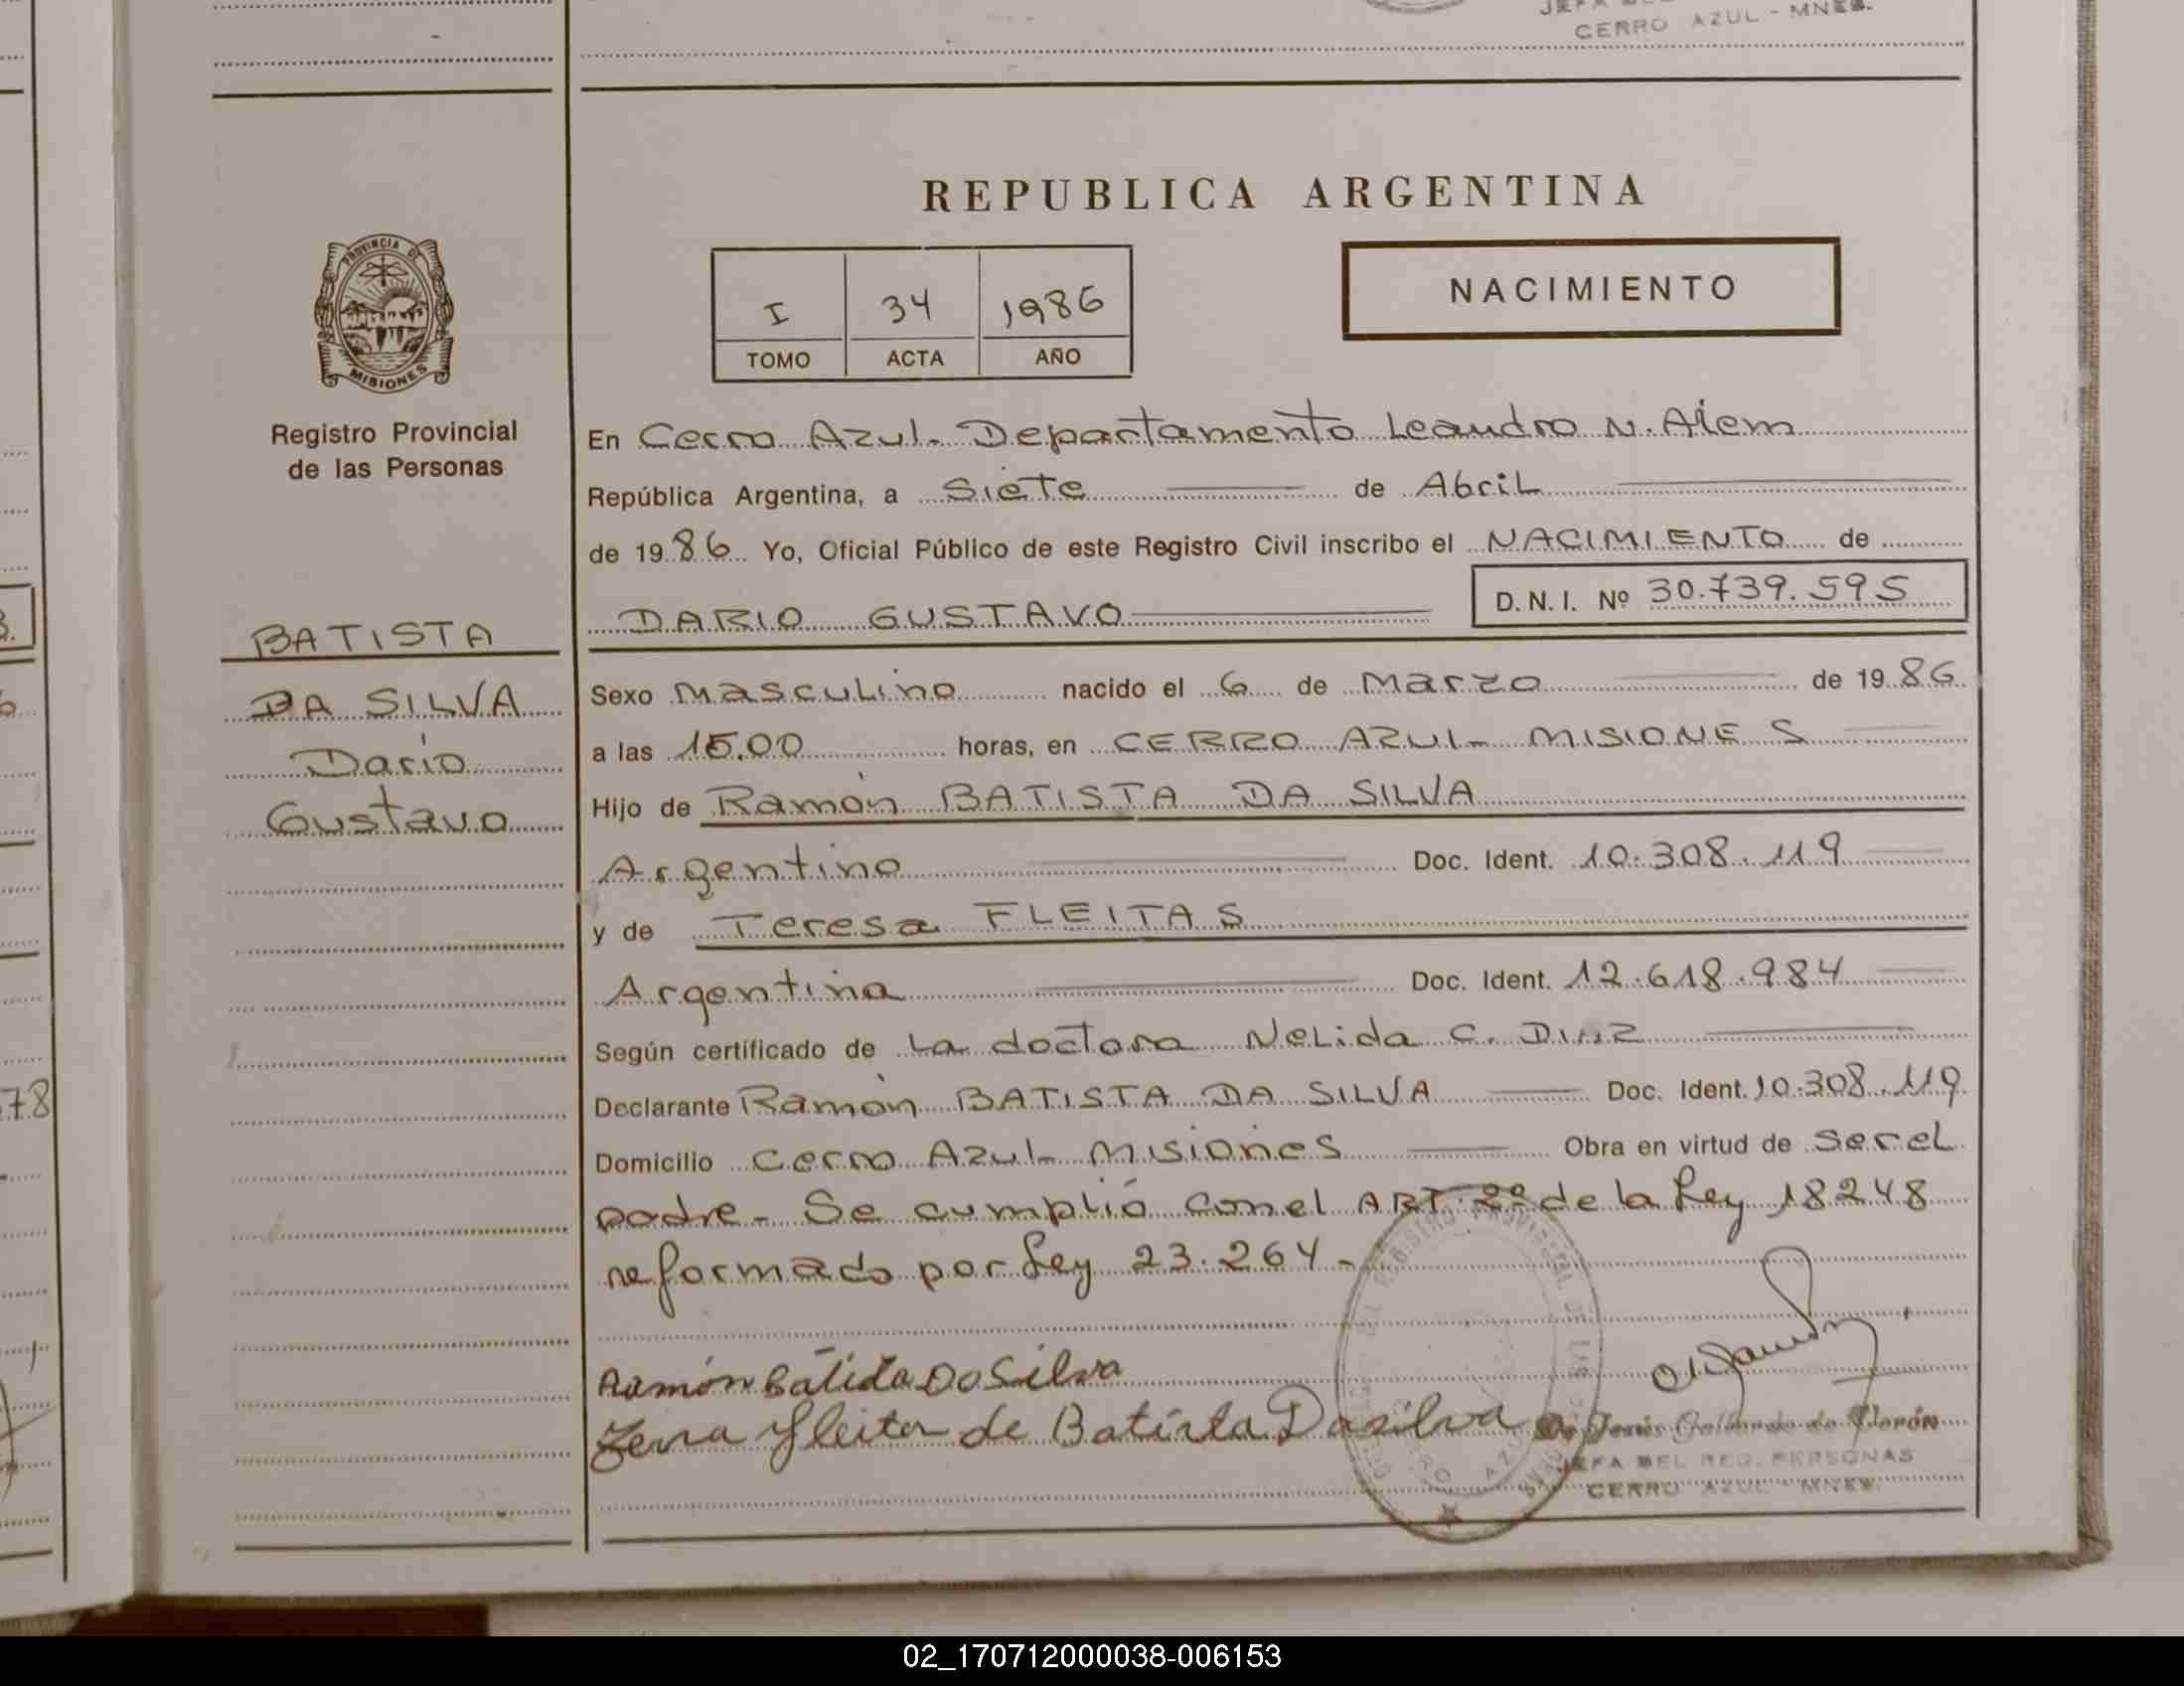 CERRO AZUL - MNES.
REPUBLICA ARGENTINA
PROVINCIA DE
MISIONES
Registro Provincial
de las Personas
I 34 1986
TOMO ACTA AÑO
NACIMIENTO
En Cerro Azul - Departamento Leandro N. Alem
República Argentina, a Siete de Abril
de 1986 Yo, Oficial Público de este Registro Civil inscribo el NACIMIENTO de
DARIO GUSTAVO
D. N. I. Nº 30.739.595
BATISTA
DA SILVA
Dario
Gustavo
Sexo Masculino nacido el 6 de Marzo de 1986
a las 15.00 horas, en CERRO AZUL - MISIONES
Hijo de Ramón BATISTA DA SILVA
Argentino Doc. Ident. 10.308.119
y de Teresa FLEITAS
Argentina Doc. Ident. 12.618.984
Según certificado de La doctora Nelida C.
Declarante Ramón BATISTA DA SILVA Doc. Ident. 10.308.119
Domicilio Cerro Azul - Misiones Obra en virtud de Ser el
padre - Se cumplió con el ART. 2º de la Ley 18248
reformado por Ley 23.264 -
78
Ramón Batista Da Silva
Fleita de Batista Dasilva
JEFA DEL REG. PERSONAS
CERRO AZUL MNES.
02_170712000038-006153